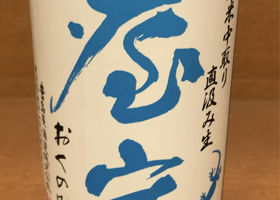 米中取り
直汲み生
屋守
おくの